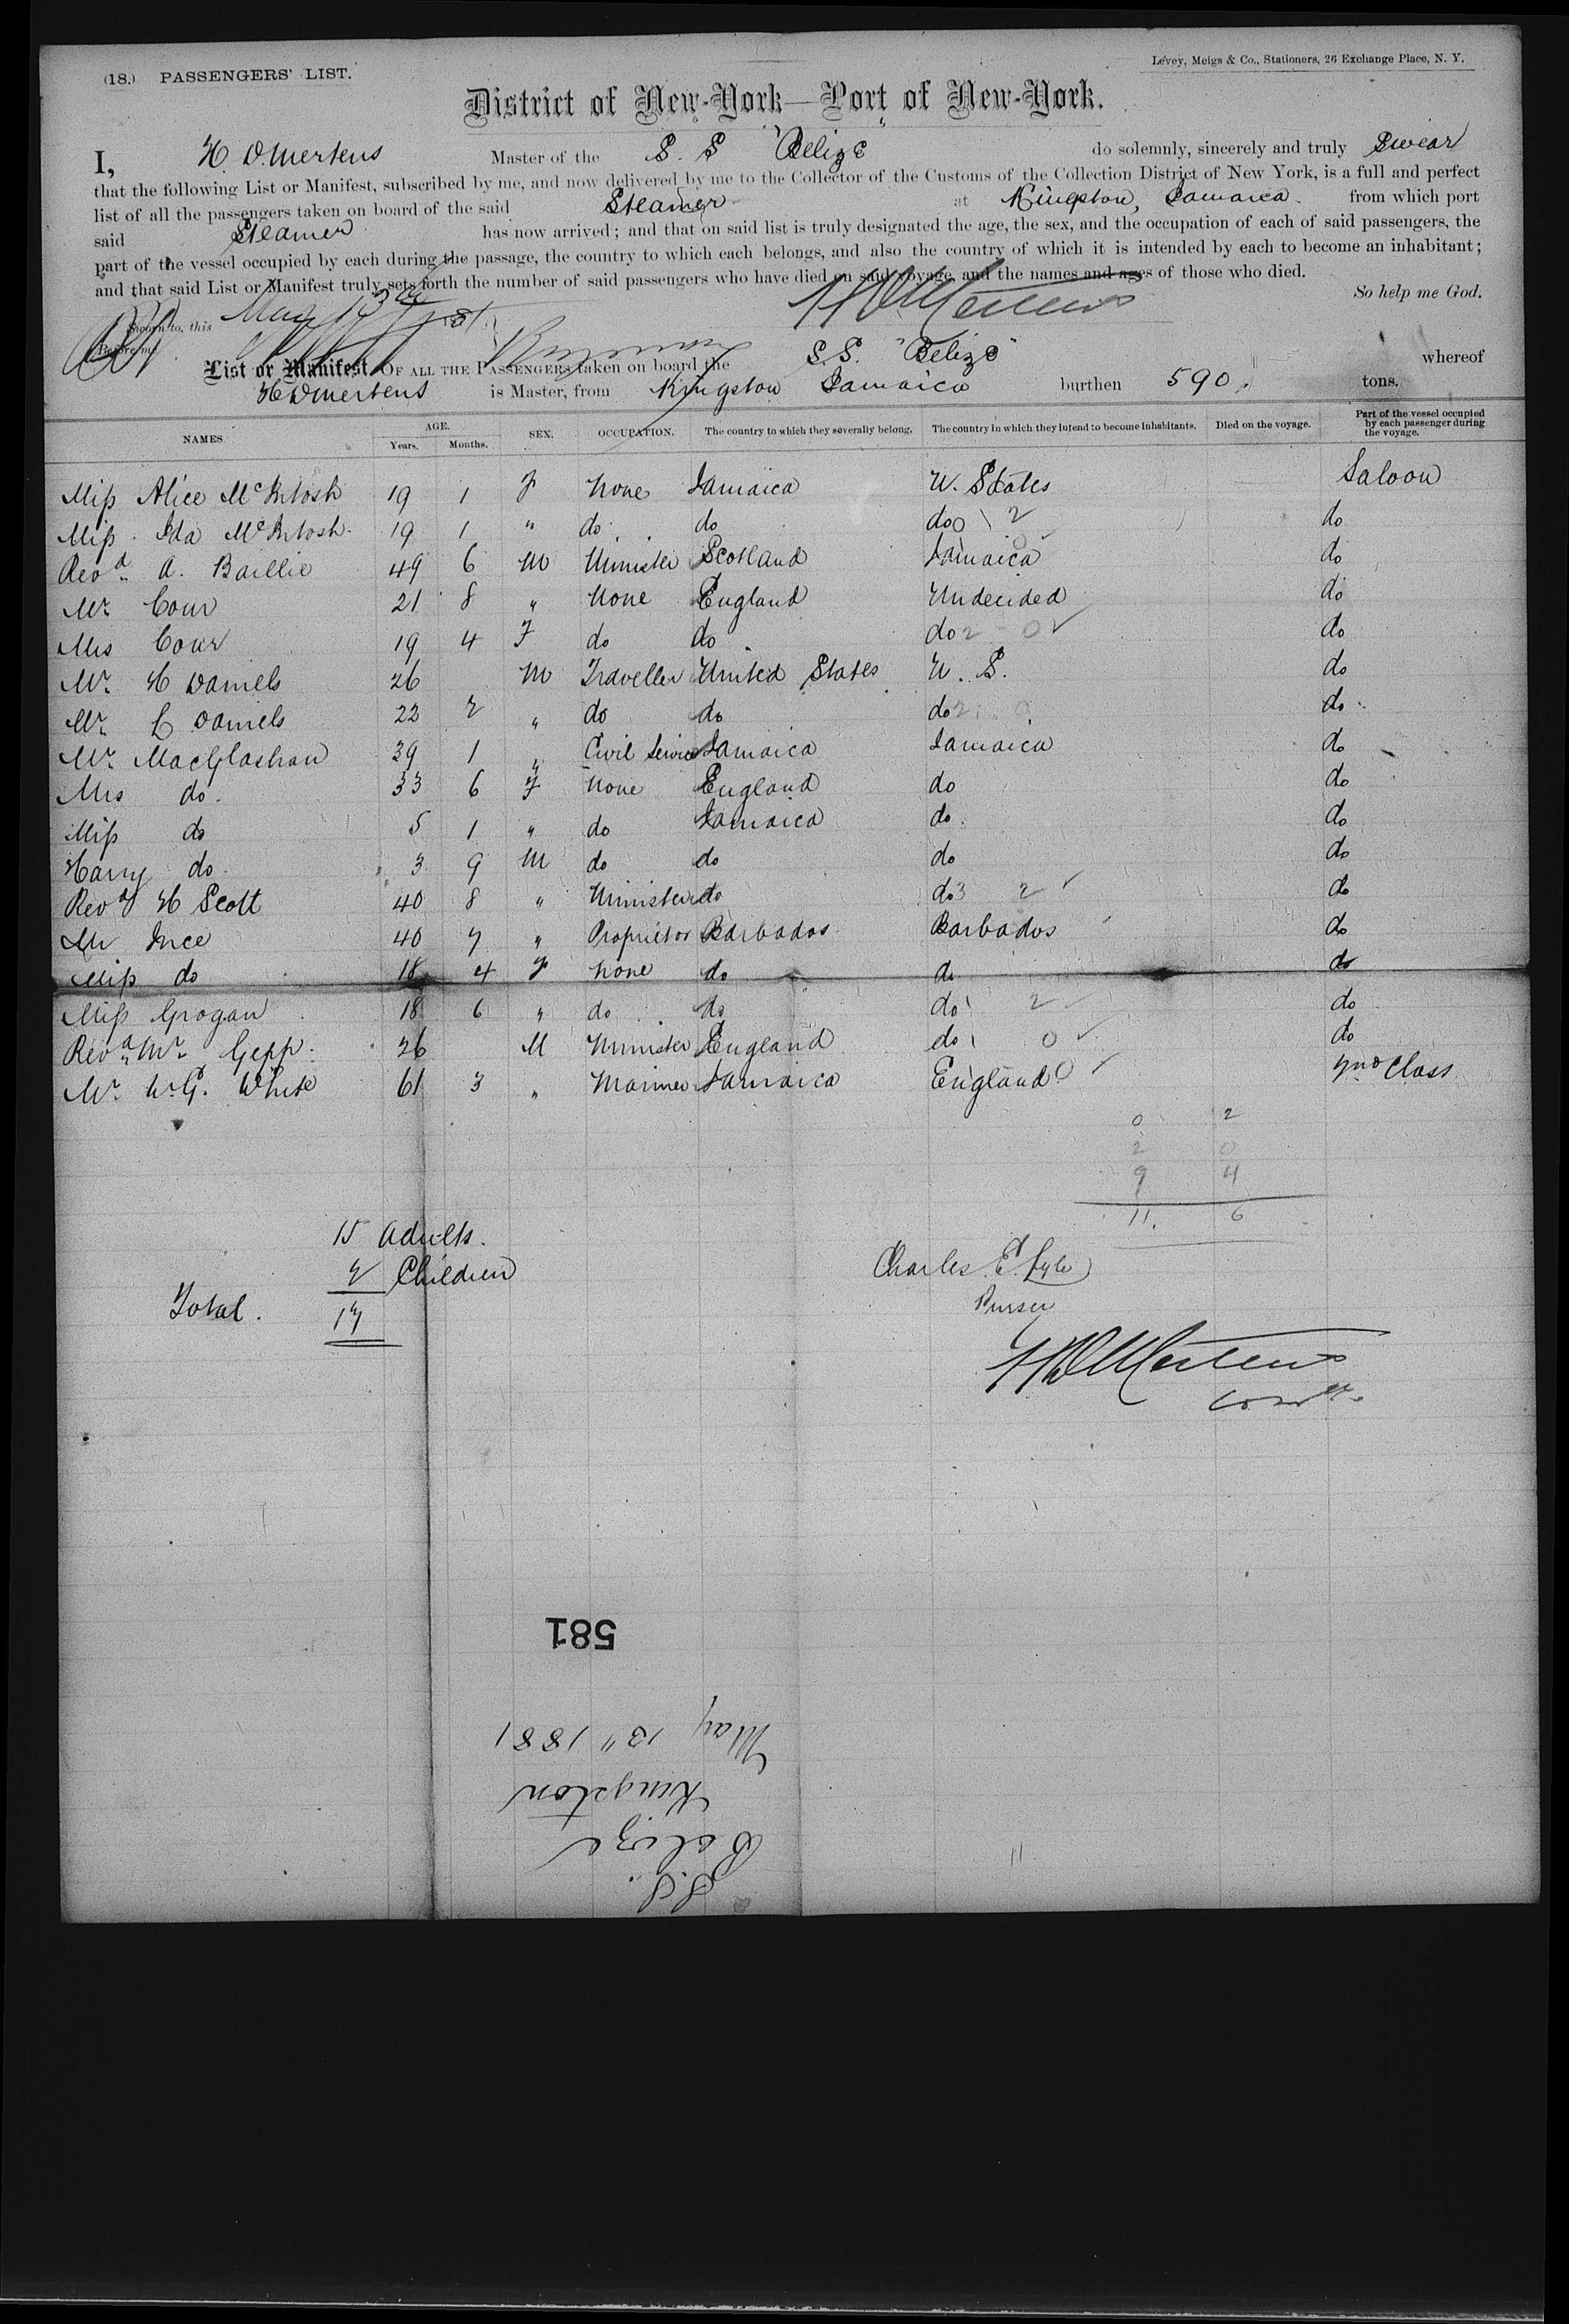 (18.) PASSENGERS' LIST.
Levey, Meigs & Co., Stationers, 26 Exchange Place, N. Y.
District of New-York—Port of New-York.
I, H. D. Mertens Master of the S. S "Belize" do solemnly, sincerely and truly Swear
that the following List or Manifest, subscribed by me, and now delivered by me to the Collector of the Customs of the Collection District of New York, is a full and perfect
list of all the passengers taken on board of the said Steamer at Kingston, Jamaica. from which port
said Steamer has now arrived; and that on said list is truly designated the age, the sex, and the occupation of each of said passengers, the
part of the vessel occupied by each during the passage, the country to which each belongs, and also the country of which it is intended by each to become an inhabitant;
and that said List or Manifest truly sets forth the number of said passengers who have died on said voyage, and the names and ages of those who died.
So help me God.
Sworn to, this May 13th 1881. H D Mertens
Before me
List or Manifest OF ALL THE PASSENGERS taken on board the S.S. "Belize" whereof
H D Mertens is Master, from Kingston Jamaica burthen 590. tons.
NAMES AGE. Years. Months. SEX. OCCUPATION. The country to which they severally belong. The country in which they intend to become inhabitants. Died on the voyage. Part of the vessel occupied by each passenger during the voyage.
Miss Alice McIntosh 19 1 F None Jamaica U. States Saloon
Miss Ida McIntosh 19 1 " do do do 0 2 do
Revd. A. Baillie 49 6 M Minister Scotland Jamaica do
Mr. Cour 21 8 " None England Undecided do
Mrs Cour 19 4 F do do do 2 - 0 ✓ do
Mr. H Daniels 26 M Traveller United States U. S. do
Mr. C Daniels 22 2 " do do do 2 0 do
Mr. MacGlashan 39 1 " Civil Service Jamaica Jamaica do
Mrs do. 33 6 F None England do do
Miss do 5 1 " do Jamaica do. do
Harry do. 3 9 M do do do do
Revd H Scott 40 8 " Minister do do 3 2 ✓ do
Mr Ince 40 7 " Proprietor Barbados Barbados do
Miss do 18 4 F None do do do
Miss Grogan 18 6 " do do do 1 2 ✓ do
Revd. Mr. Gepp. 26 M Minister England do 1 0 ✓ do
Mr. W. G. White 61 3 " Mariner Jamaica England 0 ✓ 2nd Class
0 2
2 0
9 4
11. 6
15 Adults.
2 Children
Total. 17
Charles E. Lyle
Purser
H D Mertens
581
May 13" 1881
Kingston
Belize
S.S.
11